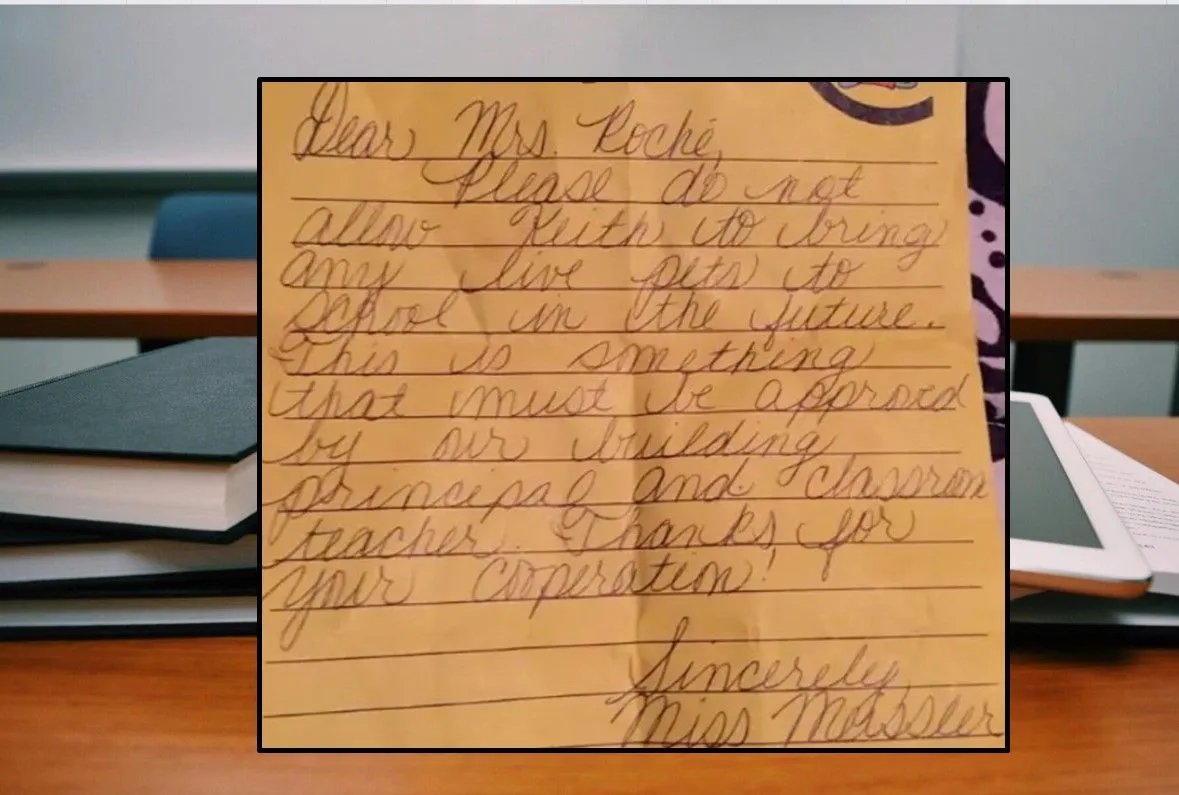 Dear Mrs. Roché,
Please do not
allow Keith to bring
any live pets to
school in the future.
This is something
that must be approved
by our building
principal and classroom
teacher. Thanks for
your cooperation!
Sincerely,
Miss